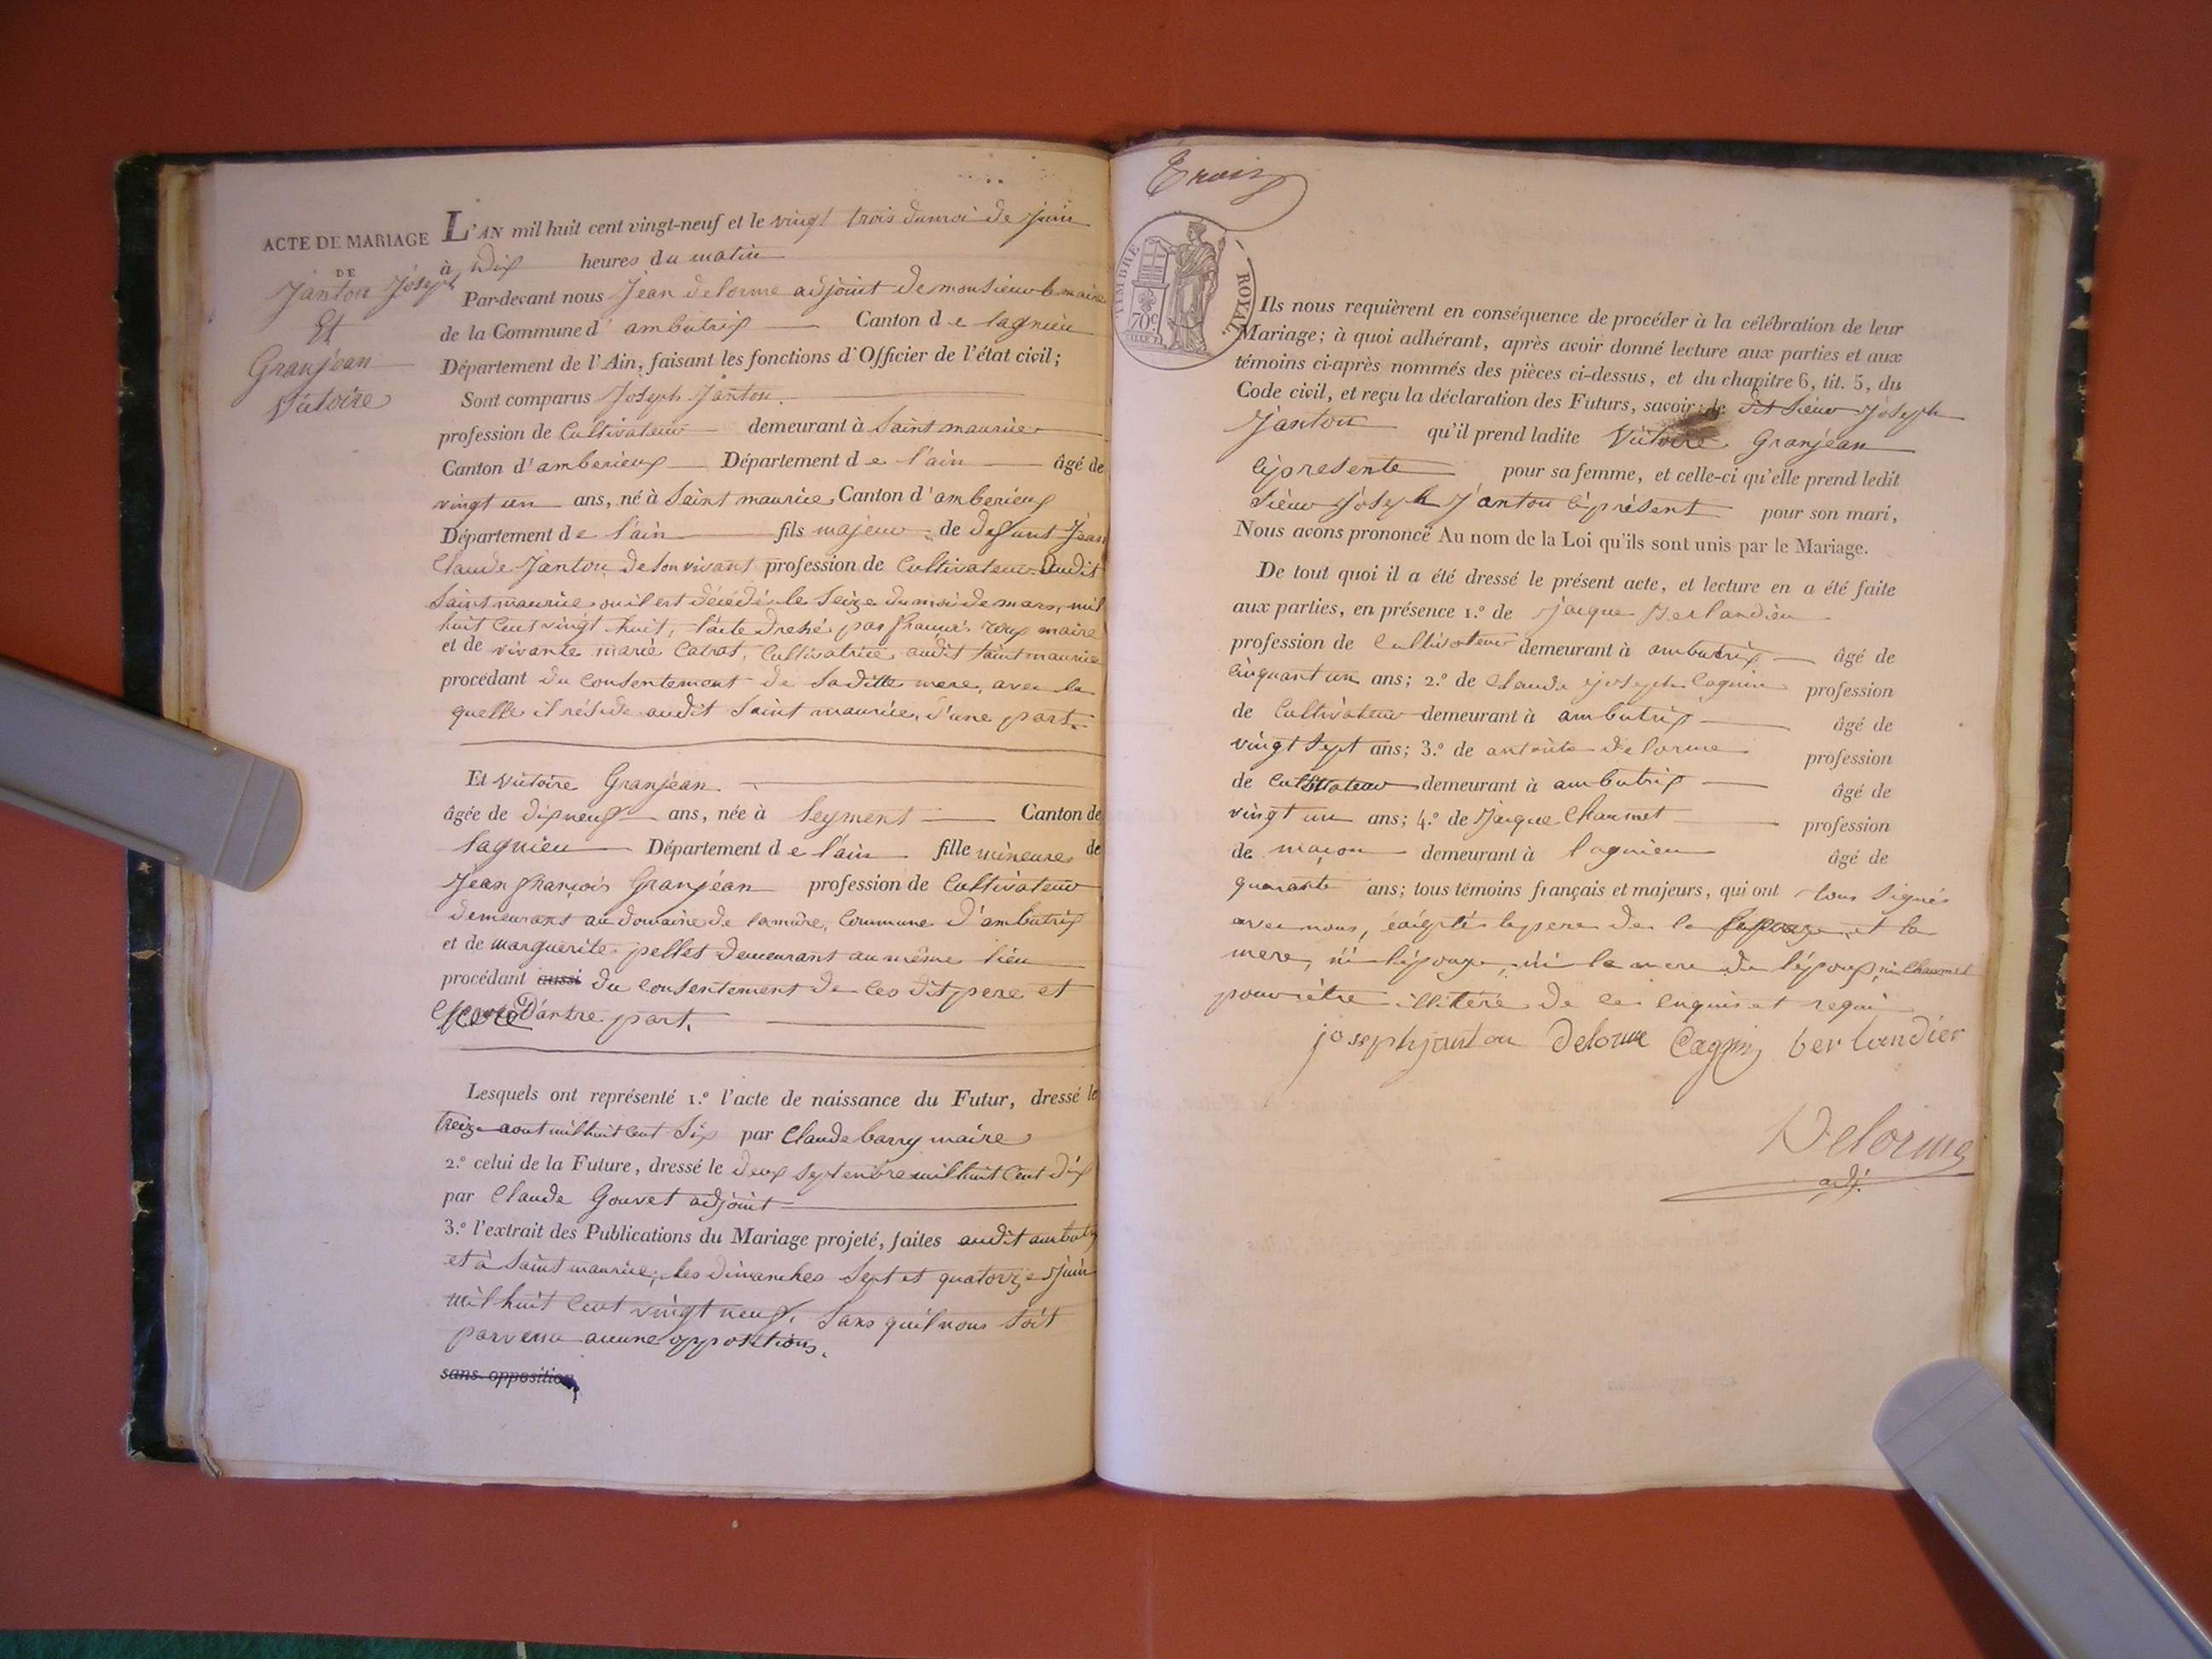 ACTE DE MARIAGE
DE
Janton Joseph
Et
Granjean
Victoire
L'AN mil huit cent vingt-neuf et le vingt trois dumoi de juin
à Dix heures du matin
Par-devant nous Jean delorme adjoint de monsieur le maire
de la Commune d'ambutrix Canton de lagnieu
Département de l'Ain, faisant les fonctions d'Officier de l'état civil;
Sont comparus Joseph Janton
profession de Cultivateur demeurant à Saint maurice
Canton d'amberieux Département de l'ain âgé de
vingt un ans, né à Saint maurice Canton d'amberieux
Département de l'ain fils majeur de defunt Jean
Claude Janton de son vivant profession de Cultivateur audit
Saint maurice ou il est décédé le Seize du moi de mars, mil
huit cent vingt huit, l'acte dressé par maire
et de vivante marie Catrat, Cultivatrice audit Saint maurice
procédant du consentement de saditte mere, avec la
quelle il réside audit Saint maurice, d'une part.
Et Victoire Granjean
âgée de dixneuf ans, née à leyment Canton de
lagnieu Département de l'ain fille mineure de
Jean françois Granjean profession de Cultivateur
demeurant au domaine de lamure, Commune d'ambutrix
et de marguerite pellet demeurant au même lieu
procédant aussi du consentement de ces dit pere et
mere D'autre part.
Lesquels ont représenté 1.º l'acte de naissance du Futur, dressé le
treize aout mil huit cent Six par Claude barry maire
2.º celui de la Future, dressé le deux septembre mil huit Cent dix
par Claude Gouvet adjoint
3.º l'extrait des Publications du Mariage projeté, faites audit ambutrix
et à Saint maurice, les dimanches Sept et quatorze Juin
mil huit Cent vingt neuf. Sans quil nous soit
parvenu aucune oppositions.
sans opposition
Trois
TIMBRE ROYAL
70c
Ils nous requièrent en conséquence de procéder à la célébration de leur
Mariage; à quoi adhérant, après avoir donné lecture aux parties et aux
témoins ci-après nommés des pièces ci-dessus, et du chapitre 6, tit. 5, du
Code civil, et reçu la déclaration des Futurs, savoir: le dit Sieur Joseph
Janton qu'il prend ladite Victoire Granjean
cy presente pour sa femme, et celle-ci qu'elle prend ledit
Sieur Joseph Janton ci présent pour son mari,
Nous avons prononcé Au nom de la Loi qu'ils sont unis par le Mariage.
De tout quoi il a été dressé le présent acte, et lecture en a été faite
aux parties, en présence 1.º de Jacque Berlandier
profession de Cultivateur demeurant à ambutrix âgé de
cinquant un ans; 2.º de Claude joseph Cagnin profession
de Cultivateur demeurant à ambutrix âgé de
vingt sept ans; 3.º de antoine delorme profession
de Cultivateur demeurant à ambutrix âgé de
vingt un ans; 4.º de Jacque Chaumet profession
de maçon demeurant à lagnieu âgé de
quarante ans; tous témoins français et majeurs, qui ont tous signés
avec nous, excepté le pere de la et la
mere, ni l'épouse, ni la mere de l'époux, ni Chaumet
pour être illitéré de ce enquis et requi
joseph janton Delorme Cagnin berlandier
Delorme
adj.